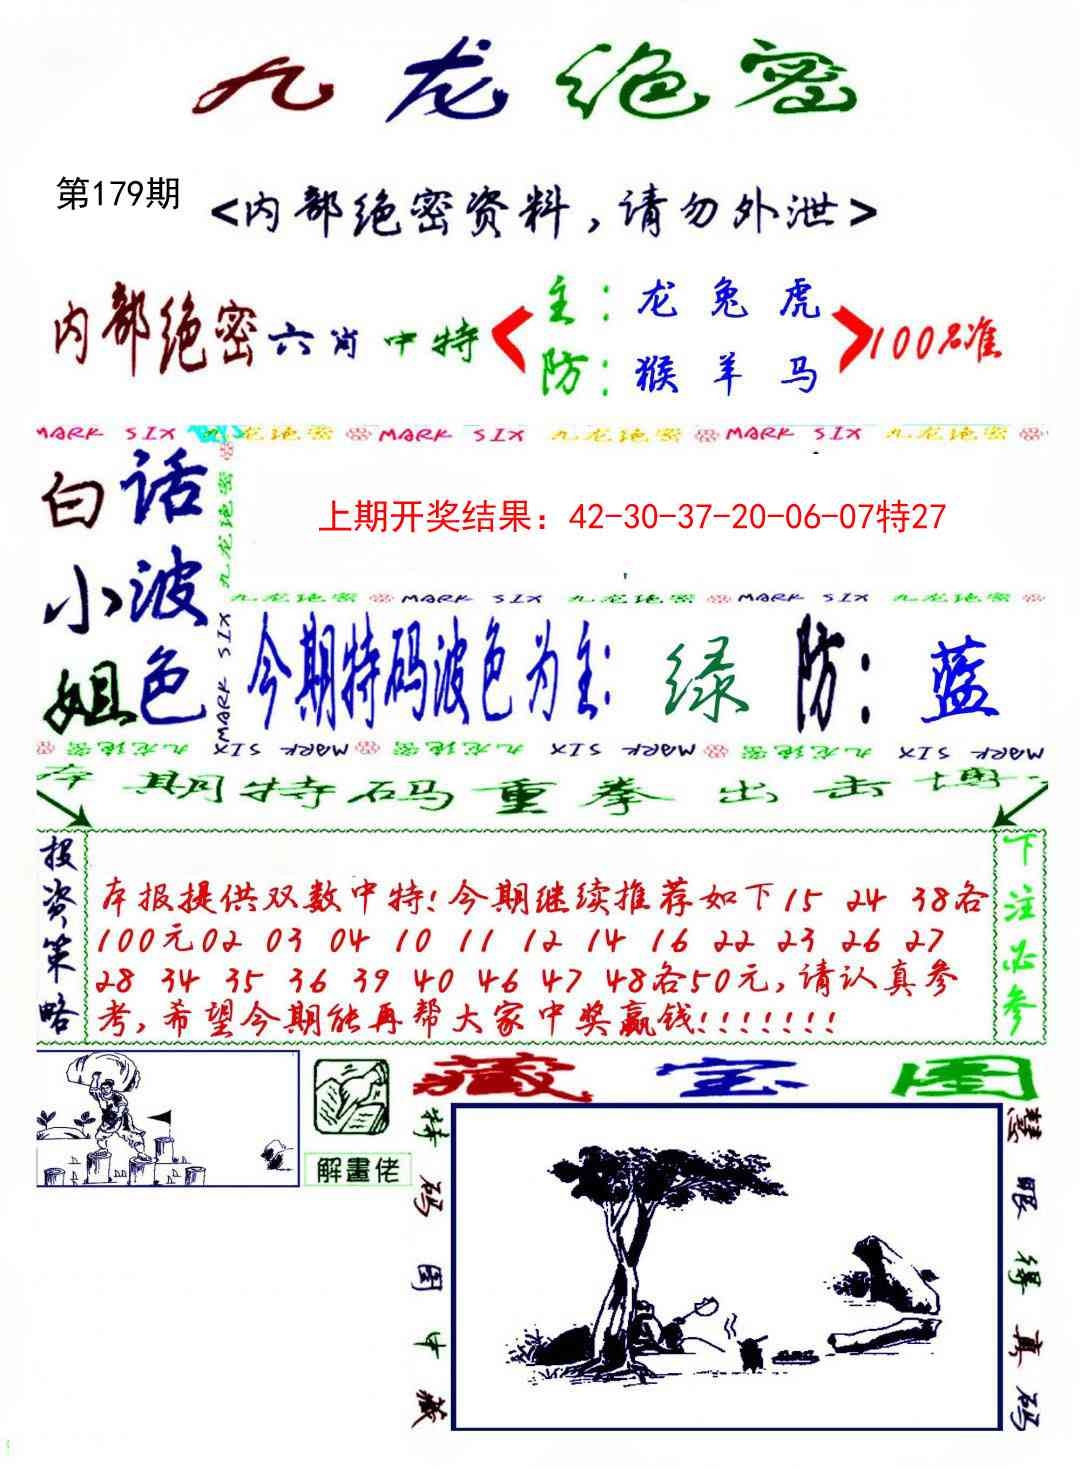 九龙绝密
第179期
<内部绝密资料,请勿外泄>
内部绝密六肖中特
主:龙 兔 虎
防:猴 羊 马
100%准
MARK SIX 九龙绝密 MARK SIX 九龙绝密 MARK SIX 九龙绝密
白话
小波
姐色
九龙绝密
MARK SIX
上期开奖结果：42-30-37-20-06-07特27
九龙绝密 MARK SIX 九龙绝密 MARK SIX 九龙绝密
今期特码波色为主:绿 防:蓝
九龙绝密 MARK SIX 九龙绝密 MARK SIX 九龙绝密 MARK SIX
本期特码重拳出击博
投资策略
本报提供双数中特!今期继续推荐如下15 24 38各
100元02 03 04 10 11 12 14 16 22 23 26 27
28 34 35 36 39 40 46 47 48各50元,请认真参
考,希望今期能再帮大家中奖赢钱!!!!!!!
下注必参
解畫佬
藏宝图
特码图中藏
慧眼得真码